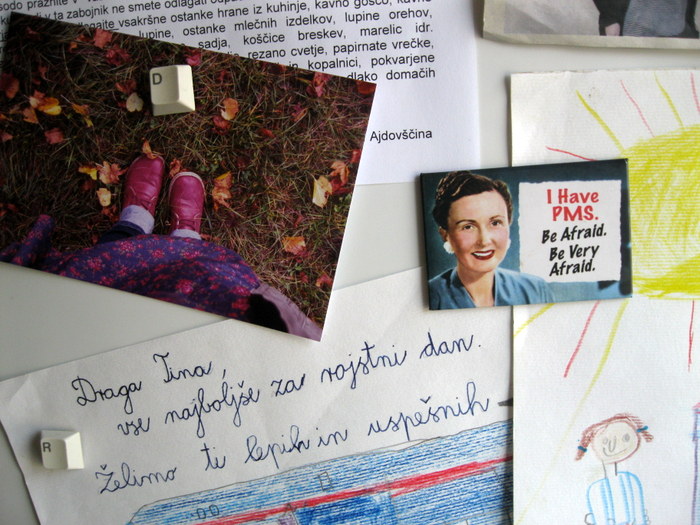 v ta zabojnik ne smete odlagati
vsakršne ostanke hrane iz kuhinje, kavno goščo, kavne
lupine, ostanke mlečnih izdelkov, lupine orehov,
sadja, koščice breskev, marelic idr.
rezano cvetje, papirnate vrečke,
in kopalnici, pokvarjene
dlako domačih
Ajdovščina
D
I Have
PMS.
Be Afraid.
Be Very
Afraid.
Draga Tina,
vse najboljše za rojstni dan.
Želimo ti lepih in uspešnih
R